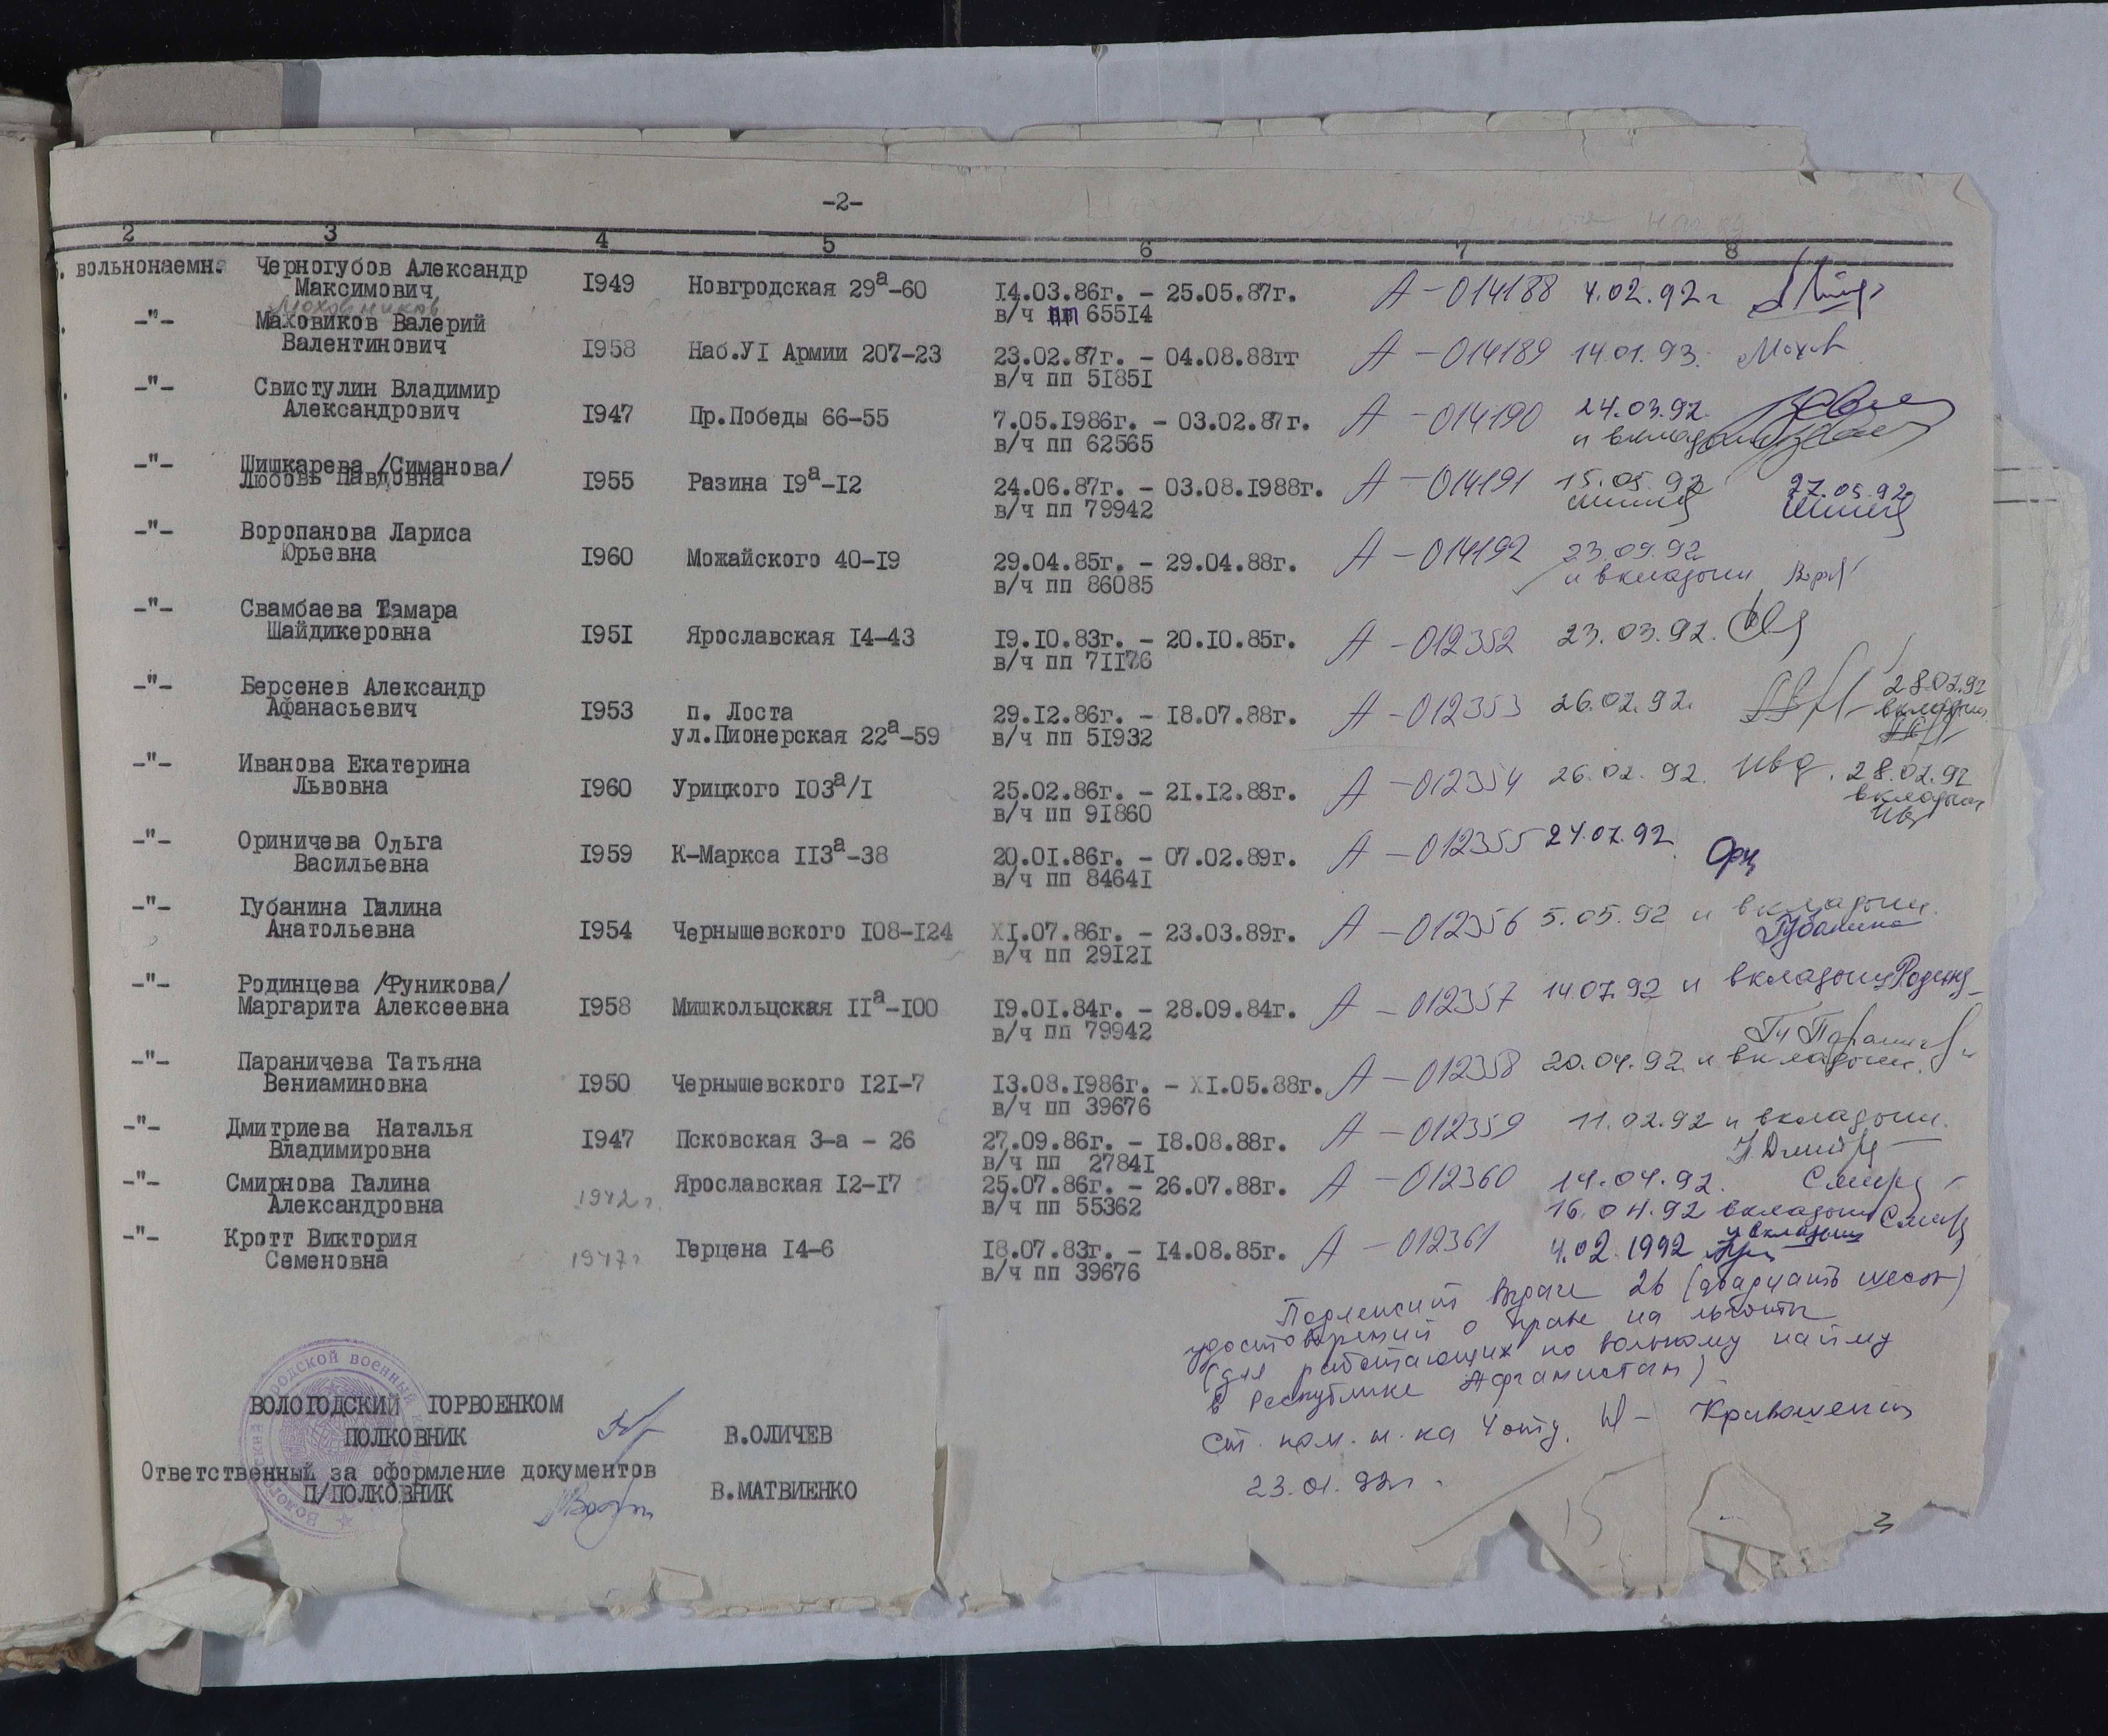 -2-
2 3 4 5 6 7 8
. вольнонаемн. Черногубов Александр
Максимович 1949 Новгродская 29а-60 14.03.86г. - 25.05.87г. А - 014188 4.02.92г
в/ч пп 65514
Моховиков
-"- Маховиков Валерий
Валентинович 1958 Наб.УI Армии 207-23 23.02.87г. - 04.08.88гг А - 014189 14.01.93. Мохов
в/ч пп 51851
-"- Свистулин Владимир
Александрович 1947 Пр.Победы 66-55 7.05.1986г. - 03.02.87г. А - 014190 24.03.92.
в/ч пп 62565 и вкладыш
-"- Шишкарева /Симанова/
Любовь Павловна 1955 Разина 19а-12 24.06.87г. - 03.08.1988г. А - 014191 15.05.92 27.05.92
в/ч пп 79942
-"- Воропанова Лариса
Юрьевна 1960 Можайского 40-19 29.04.85г. - 29.04.88г. А - 014192 23.09.92
в/ч пп 86085 и вкладыш
-"- Свамбаева Тамара
Шайдикеровна 1951 Ярославская 14-43 19.10.83г. - 20.10.85г. А - 012352 23.03.92.
в/ч пп 71176
-"- Берсенев Александр
Афанасьевич 1953 п. Лоста 29.12.86г. - 18.07.88г. А - 012353 26.02.92. 28.02.92
ул.Пионерская 22а-59 в/ч пп 51932 вкладыш
-"- Иванова Екатерина
Львовна 1960 Урицкого 103а/1 25.02.86г. - 21.12.88г. А - 012354 26.02.92. Ива. 28.02.92
в/ч пп 91860 вкладыш
Ив
-"- Ориничева Ольга
Васильевна 1959 К-Маркса 113а-38 20.01.86г. - 07.02.89г. А - 012355 24.02.92
в/ч пп 84641 Ори
-"- Губанина Галина
Анатольевна 1954 Чернышевского 108-124 XI.07.86г. - 23.03.89г. А - 012356 5.05.92 и вкладыш.
в/ч пп 29121 Губанина
-"- Родинцева /Руникова/
Маргарита Алексеевна 1958 Мишкольцская 11а-100 19.01.84г. - 28.09.84г. А - 012357 14.07.92 и вкладыш Родинц
в/ч пп 79942
-"- Параничева Татьяна
Вениаминовна 1950 Чернышевского 121-7 13.08.1986г. - XI.05.88г. А - 012358 20.04.92 и вкладыш.
в/ч пп 39676
-"- Дмитриева Наталья
Владимировна 1947 Псковская 3-а - 26 27.09.86г. - 18.08.88г. А - 012359 11.02.92 и вкладыш.
в/ч пп 27841
-"- Смирнова Галина
Александровна 1942г. Ярославская 12-17 25.07.86г. - 26.07.88г. А - 012360 14.04.92. Смирн
в/ч пп 55362 16.04.92 вкладыш Смирн
-"- Кротт Виктория
Семеновна 1947г Герцена 14-6 18.07.83г. - 14.08.85г. А - 012361 4.02.1992 и вкладыш
в/ч пп 39676
Подлежит выдаче 26 (двадцать шесть)
удостоверений о праве на льготы
(для работающих по вольному найму
в Республике Афганистан)
Ст. пом. н-ка 4 отд. Кривошеин
23.01.92г.
ВОЛОГОДСКИЙ ГОРВОЕНКОМ
ПОЛКОВНИК В.ОЛИЧЕВ
Ответственный за оформление документов
П/ПОЛКОВНИК В.МАТВИЕНКО
15
3